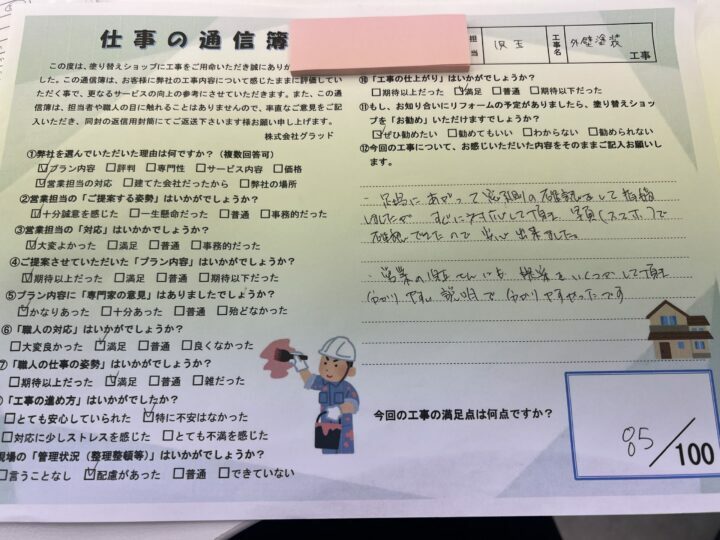 仕事の通信簿
この度は、塗り替えショップに工事をご用命いただき誠にありが
した。この通信簿は、お客様に弊社の工事内容について感じたままに評価してい
ただく事で、更なるサービスの向上の参考にさせていただきます。また、この通
信簿は、担当者や職人の目に触れることはありませんので、率直なご意見をご記
入いただき、同封の返信用封筒にてご返送下さいます様お願い申し上げます。
株式会社グラッド
①弊社を選んでいただいた理由は何ですか？（複数回答可）
☑プラン内容 □評判 □専門性 □サービス内容 □価格
☑営業担当の対応 □建てた会社だったから □弊社の場所
②営業担当の「ご提案する姿勢」はいかがでしょうか？
☑十分誠意を感じた □一生懸命だった □普通 □事務的だった
③営業担当の「対応」はいかかでしょうか？
☑大変よかった □満足 □普通 □事務的だった
④ご提案させていただいた「プラン内容」はいかがでしょうか？
☑期待以上だった □満足 □普通 □期待以下だった
⑤プラン内容に「専門家の意見」はありましたでしょうか？
☑かなりあった □十分あった □普通 □殆どなかった
⑥「職人の対応」はいかがでしょうか？
□大変良かった ☑満足 □普通 □良くなかった
⑦「職人の仕事の姿勢」はいかがでしょうか？
□期待以上だった ☑満足 □普通 □雑だった
「工事の進め方」はいかがでしたか？
□とても安心していられた ☑特に不安はなかった
□対応に少しストレスを感じた □とても不満を感じた
現場の「管理状況（整理整頓等）」はいかがでしょうか？
□言うことなし ☑配慮があった □普通 □できていない
担当
工事名
外壁塗装
工事
⑩「工事の仕上がり」はいかがでしょうか？
□期待以上だった ☑満足 □普通 □期待以下だった
⑪もし、お知り合いにリフォームの予定がありましたら、塗り替えショッ
プを「お勧め」いただけますでしょうか？
☑ぜひ勧めたい □勧めてもいい □わからない □勧められない
⑫今回の工事について、お感じいただいた内容をそのままご記入お願いし
ます。
・足場にあがって 確認をして指摘
しましたが すぐに対応して頂き 写真(スマホ)で
確認できたので 安心出来ました。
・営業の さんにも 提案をいくつかして頂き
分かりやすい説明で 分かりやすかったです
今回の工事の満足点は何点ですか？
85/100